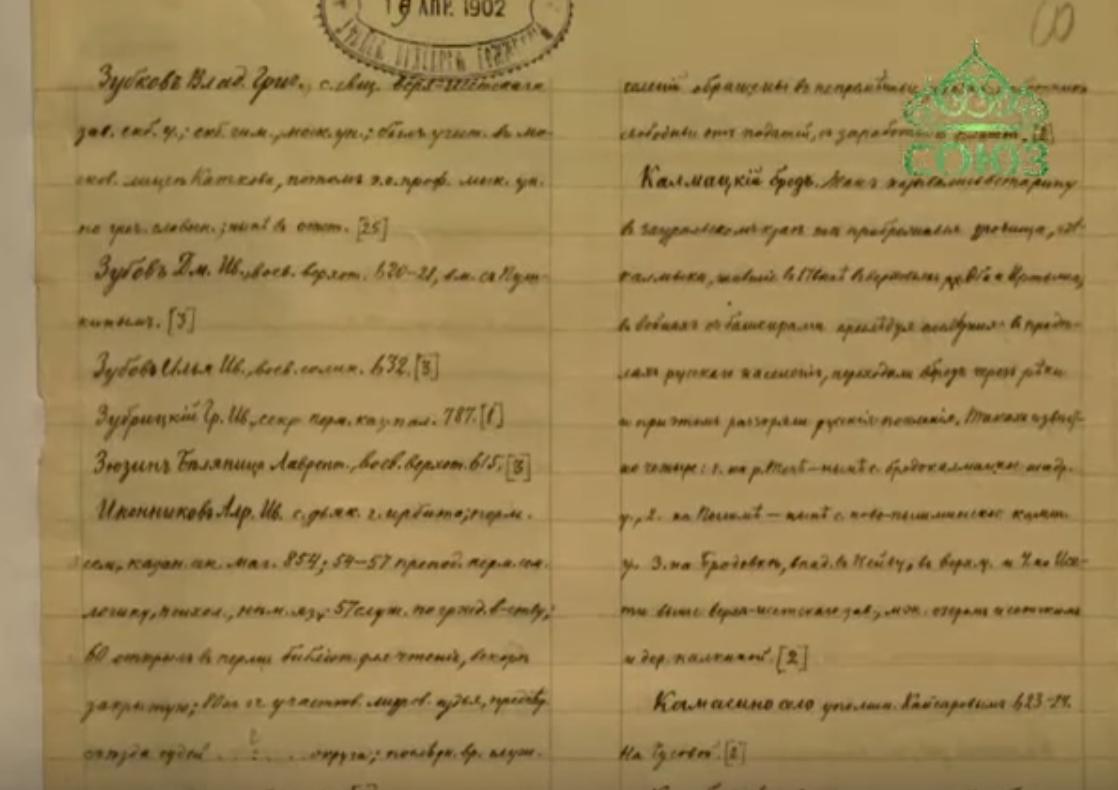 19 АПР. 1902
СОЮЗ
Зубковъ Влад. Григ., с. свящ. верх-исетскаго
зав. екб. у.; екб. гим., моск. ун.; былъ учит. въ мо-
сков. лицеѣ Каткова, потомъ э.о. проф. моск. ун.
по греч. словесн.; нынѣ въ отст. [25]
Зубовъ Дм. Ив., воев. верхот. 620-21, вм. съ Пуш-
кинымъ. [3]
Зубовъ Илья Ив., воев. солик. 632. [3]
Зубрицкій Гр. Ив., секр. перм. каз. пал. 787. [1]
Зюзинъ Баляница Лаврент., воев. верхот. 615. [3]
Иконниковъ Алр. Ив. с. дьяк. г. ирбита; перм.
сем., казан. ак. маг. 854; 54-57 препод. перм. сем.
логику, психол., нѣм. яз.; 57 служ. по гражд. в-ству;
60 открылъ въ перми библіот. для чтенія, вскорѣ
закрытую; 80 гг. участков. миров. судья, предсѣд.
съѣзда судей округа; послѣдн. вр. служ.
обращены въ
свободны отъ податей, съ заработн. [2]
Калмацкій бродъ. Такъ назывались встарину
въ зауральскомъ краѣ прибрежныя урочища, гдѣ
калмыки, жившіе въ
въ войнахъ съ башкирами въ предѣ-
лахъ русскаго населенія, переходили вбродъ чрезъ рѣки
и при этомъ разоряли русскія поселенія. Такихъ извѣст-
но четыре: 1. на р. Течѣ — нынѣ с. бродокалмацкое шадр.
у., 2. на Пышмѣ — нынѣ с. ново-пышминское камыш.
у. 3. на Бродовкѣ, впад. въ Нейву, въ верх. у. и 4. на Исе-
ти выше верхъ-исетскаго зав., меж. озеромъ исетскимъ
и дер. палкиной. [2]
Камасино село упомин. Кайсаровымъ 623-24.
На Чусовой. [2]